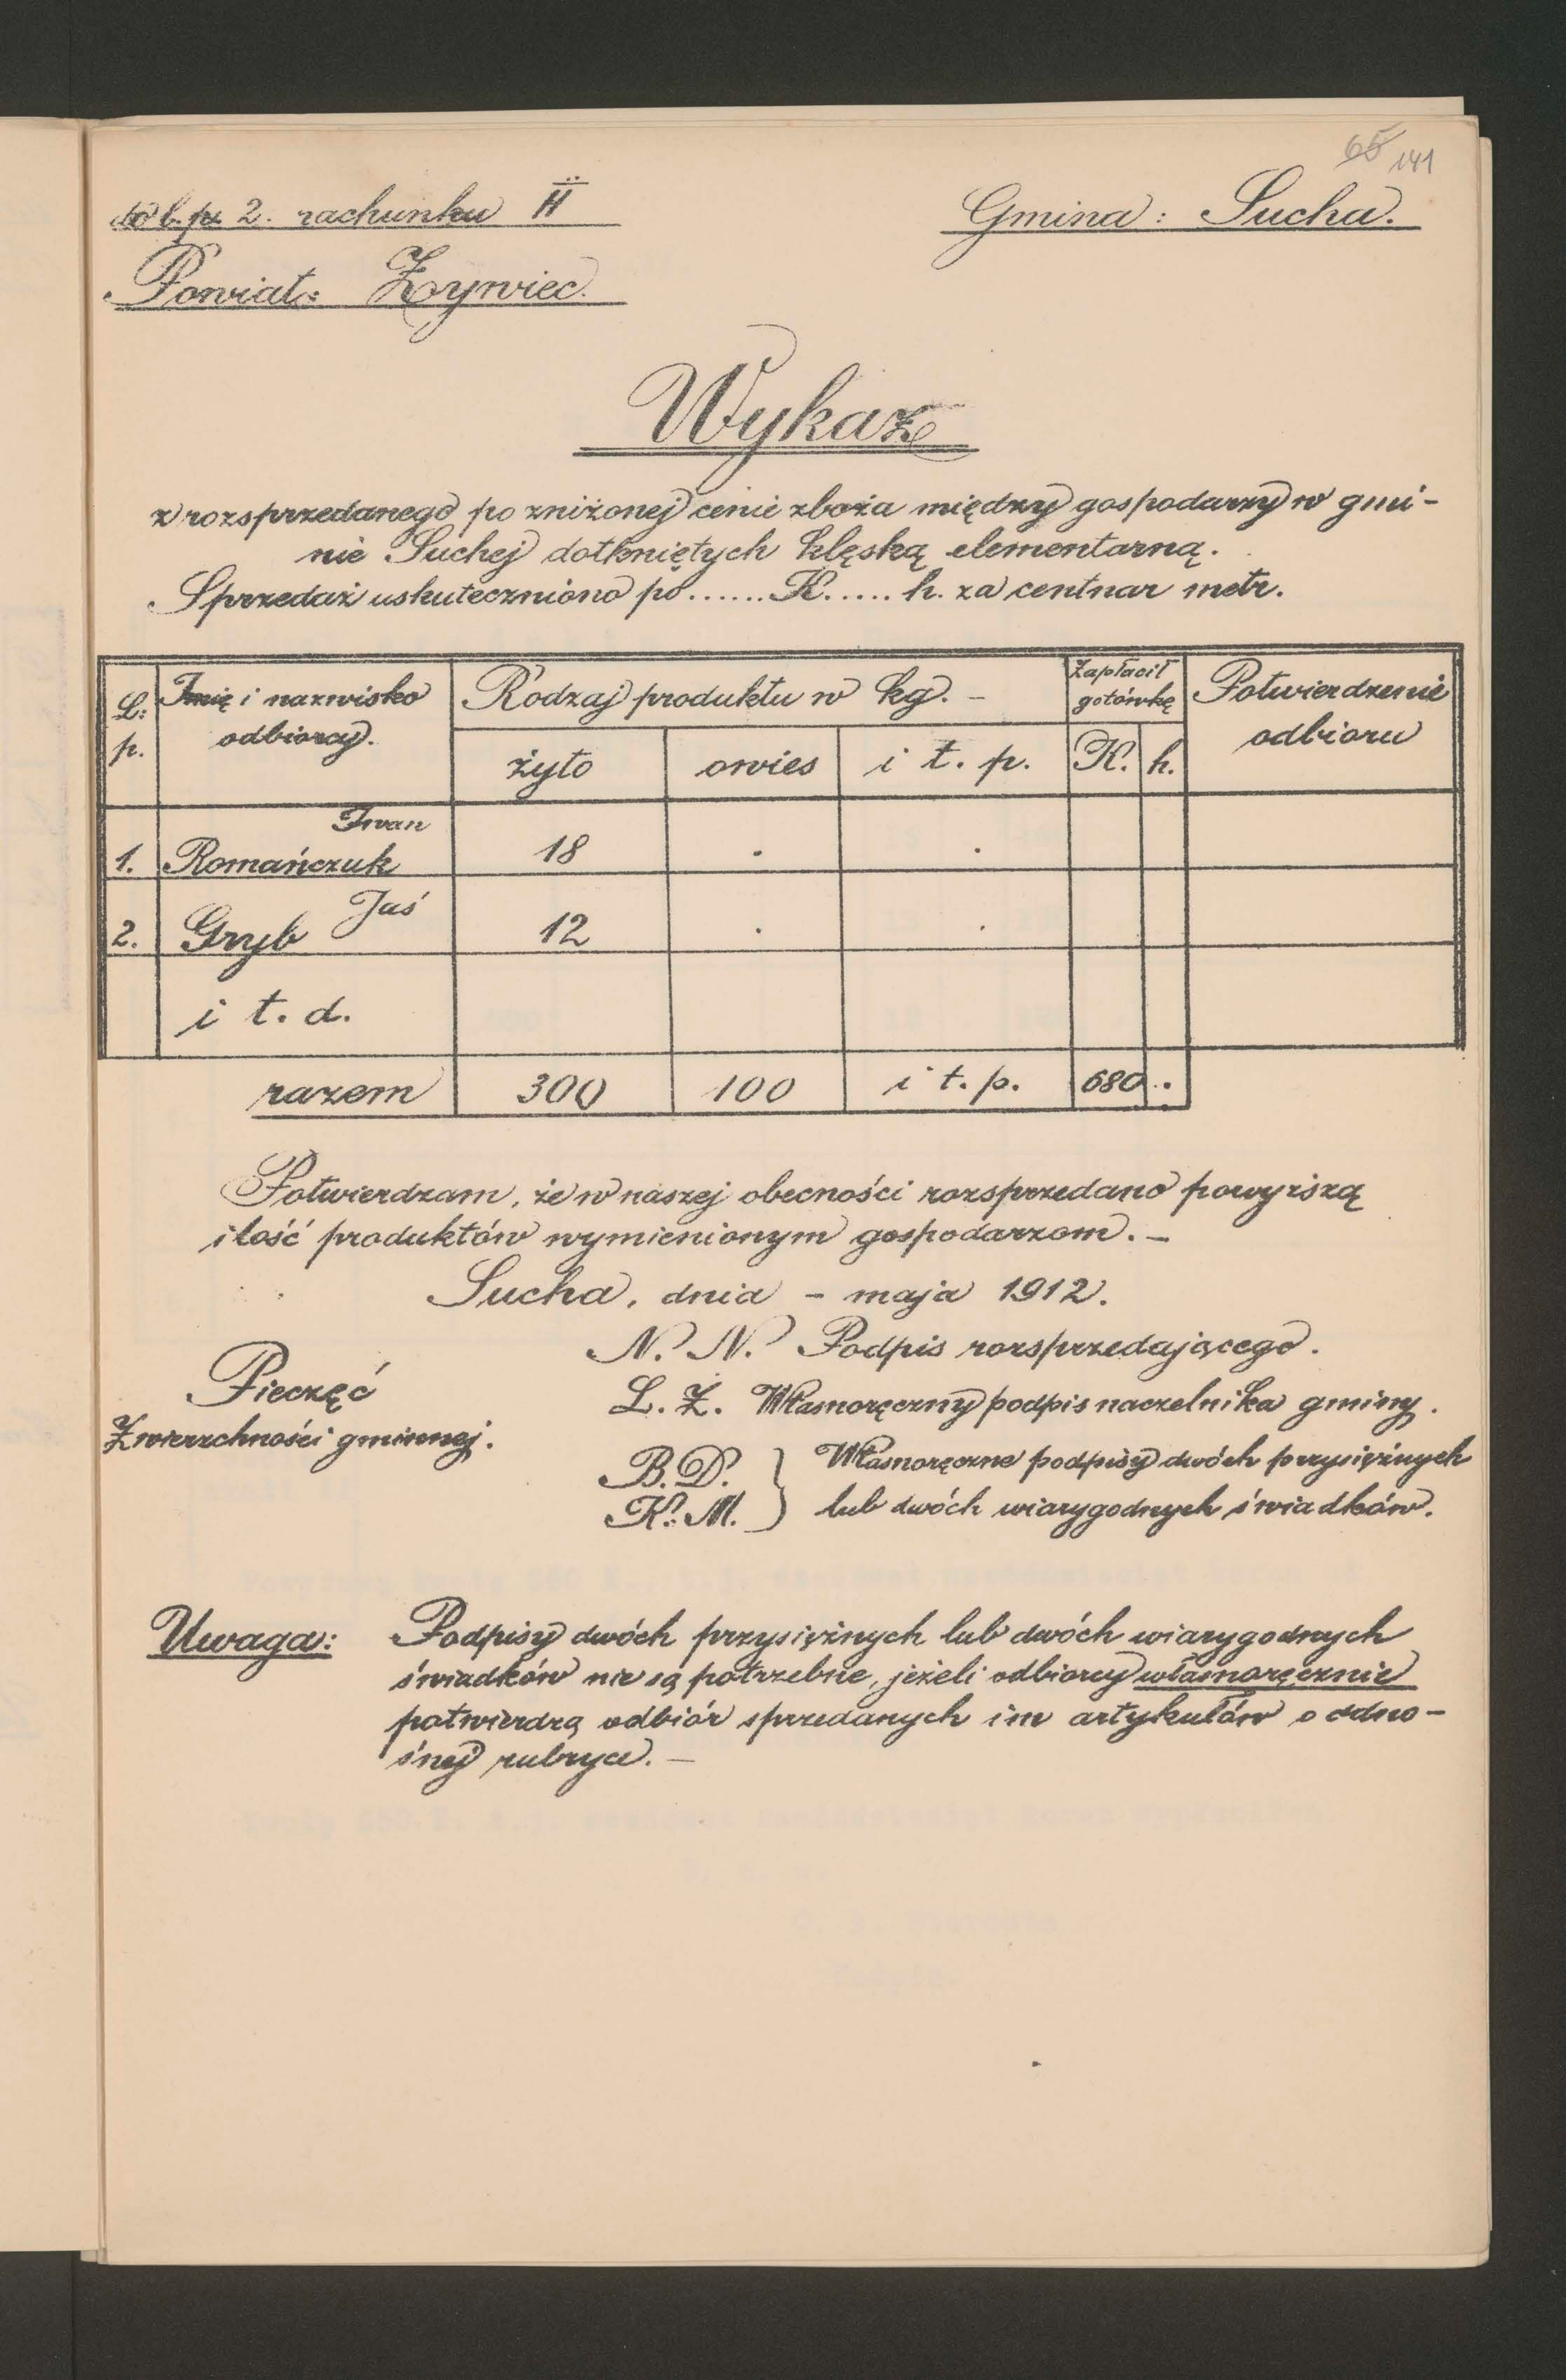 65 141
do l. p. 2. rachunku II
Gmina: Sucha.
Powiat: Żywiec.
Wykaz
z rozsprzedanego po zniżonej cenie zboża między gospodarzy w gmi-
nie Suchej dotkniętych klęską elementarną.
Sprzedaż uskuteczniono po ...... K. ..... h. za centnar metr.
L: p. Imię i nazwisko odbiorcy. Rodzaj produktu w kg. - Zapłacił gotówkę Potwierdzenie odbioru
żyto owies i t. p. K. h.
1. Romańczuk Iwan 18 . .
2. Gryb Jaś 12 . .
i t. d.
razem 300 100 i t. p. 680 .
Potwierdzam, że w naszej obecności rozsprzedano powyższą
ilość produktów wymienionym gospodarzom. -
Sucha, dnia - maja 1912.
N. N. Podpis rozsprzedającego.
Pieczęć
Zwierzchności gminnej.
L. Z. Własnoręczny podpis naczelnika gminy.
B. D. } Własnoręczne podpisy dwóch przysiężnych
K. M. } lub dwóch wiarygodnych świadków.
Uwaga: Podpisy dwóch przysiężnych lub dwóch wiarygodnych
świadków nie są potrzebne, jeżeli odbiorcy własnoręcznie
potwierdzą odbiór sprzedanych im artykułów o odno-
śnej rubryce. -